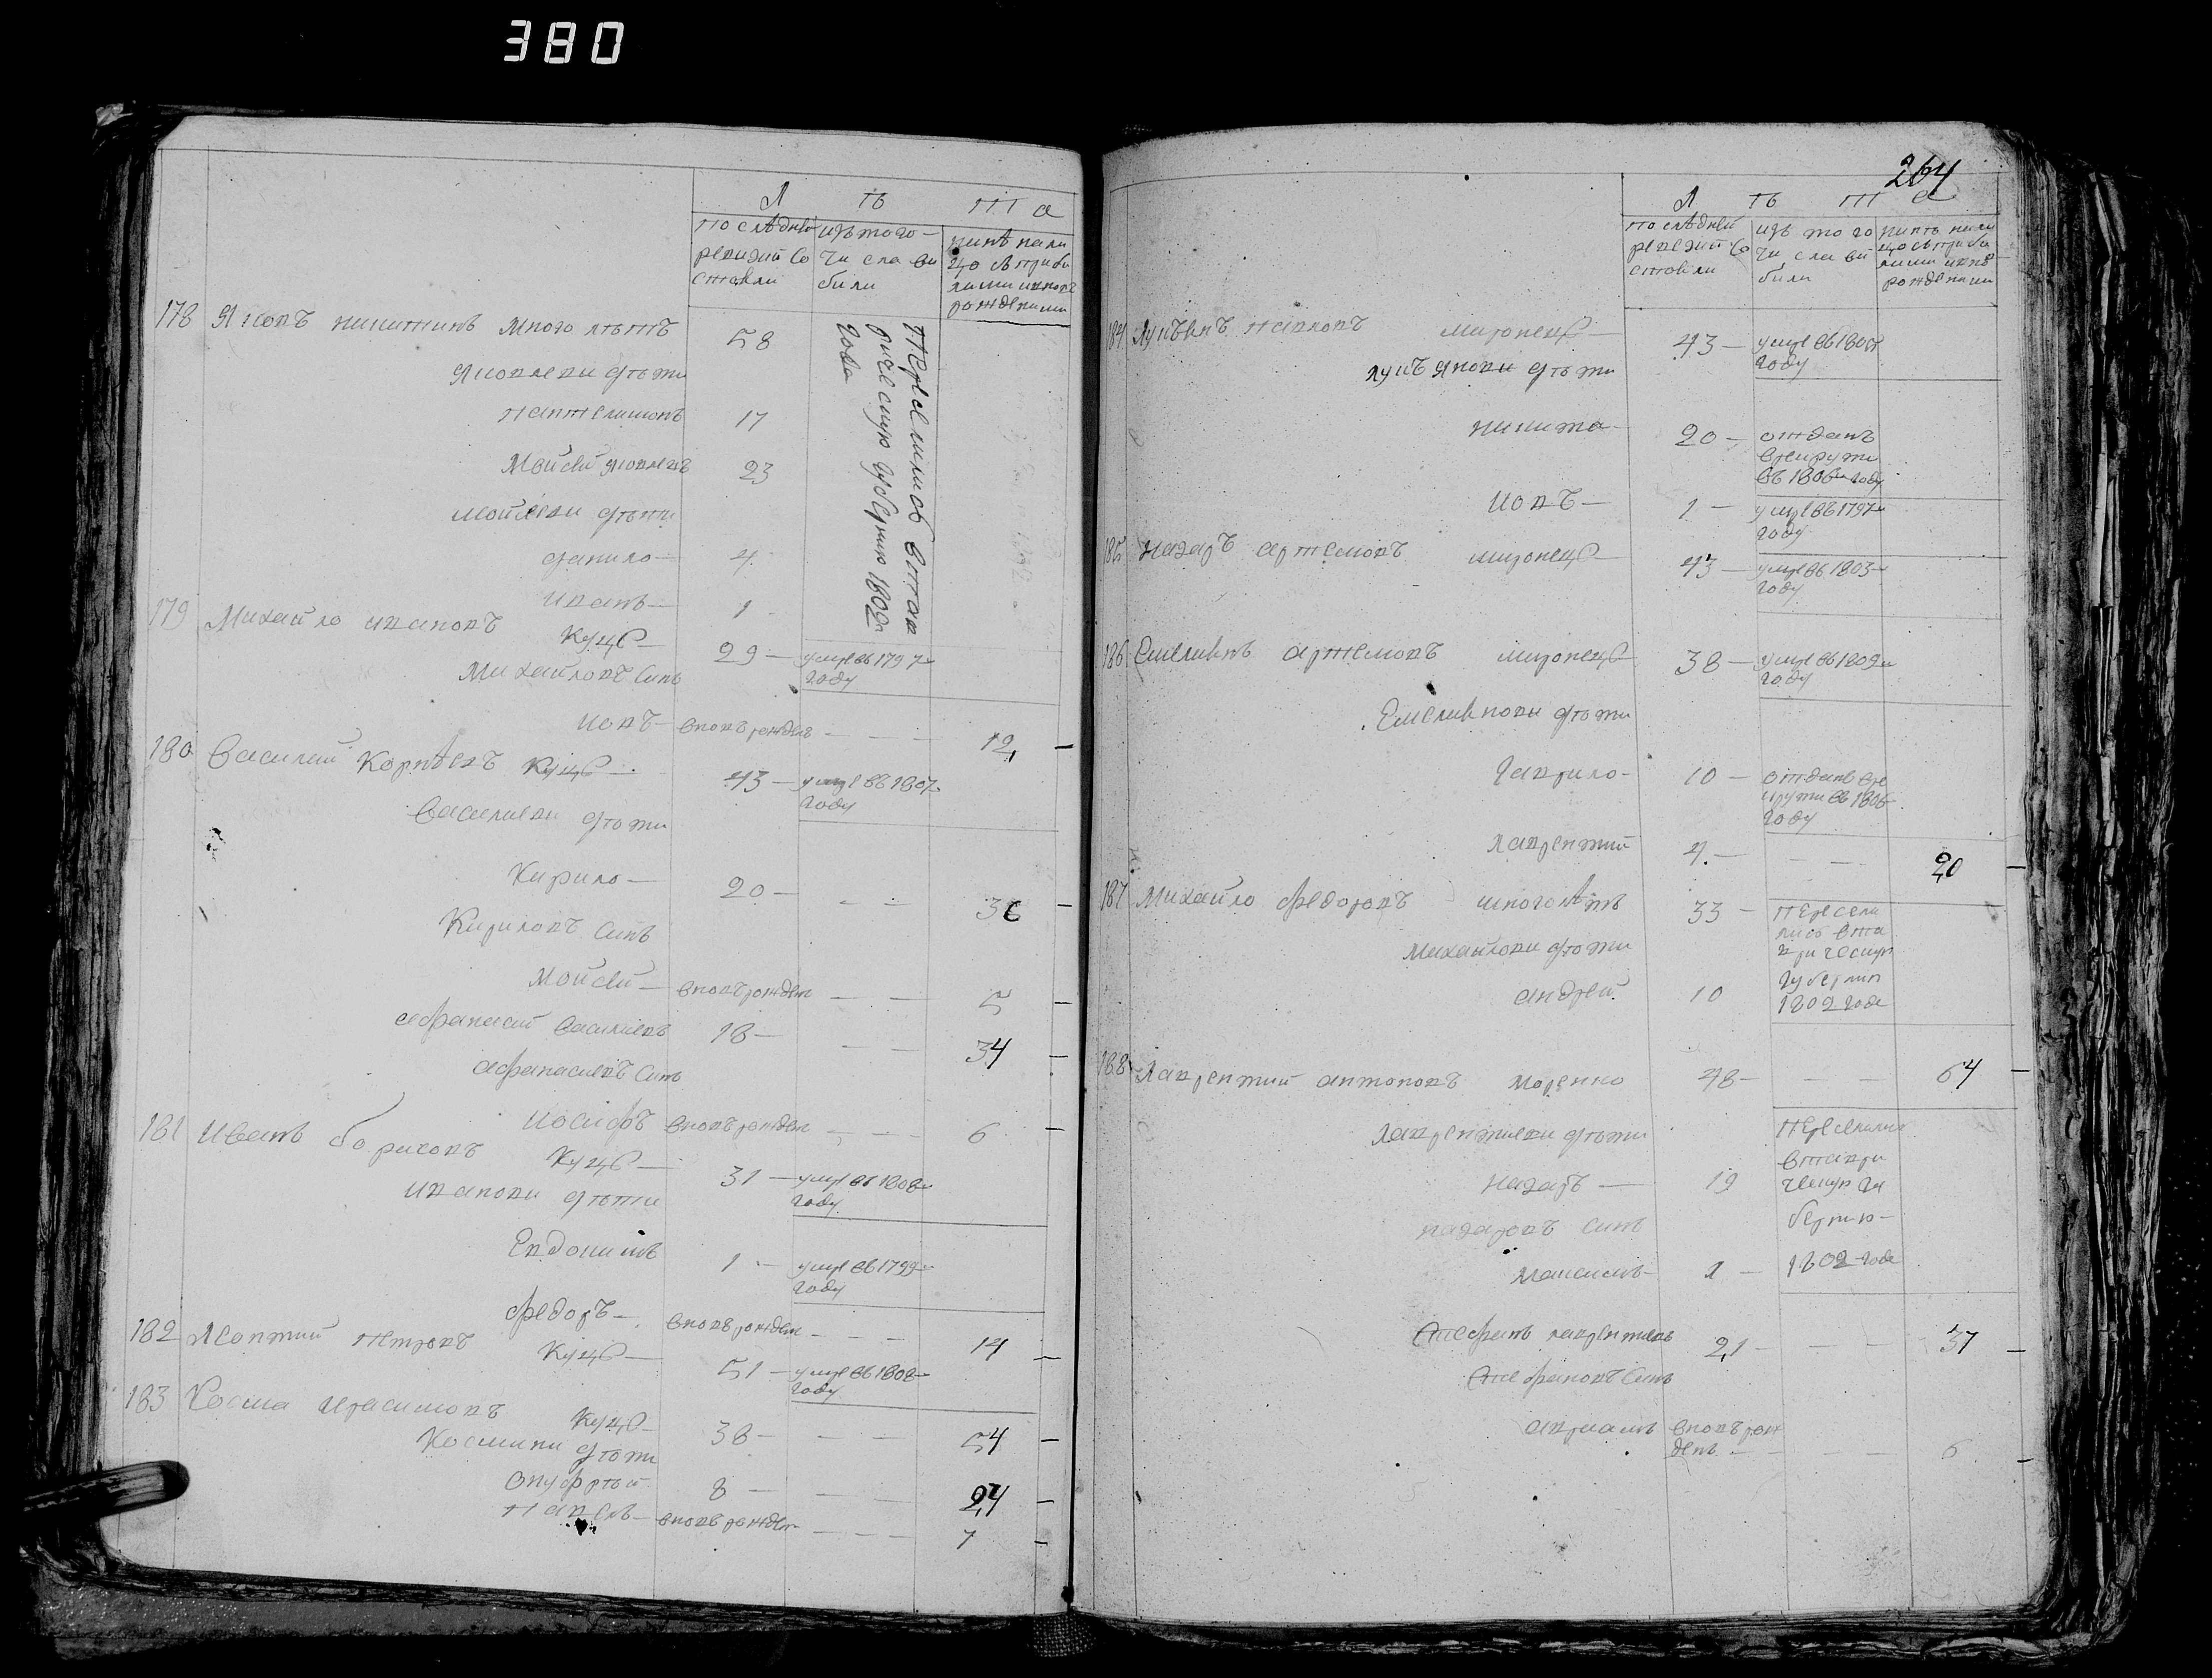 380
Л ѣ т а
последней ревизий состояли
изъ того числа выбыли
нинѣ на лицо съ прибилыми и новорожденими
178 Яковъ никитинъ Многолѣтъ 58
Переселились втаврическую губернию 1802 года
Яковлеви дѣти
пантелимонъ 17
Мойсей яковлевъ 23
Мойсееви дѣти
данило — 4
иванъ — 1
179 Михайло ивановъ Куцъ — 29 — умре въ 1797 м году
Михайловъ синъ
иовъ — вновь рожденъ — — — 12
180 Василий Корнѣевъ Куцъ — 43 — умре въ 1807 м году
Василиеви дѣти
Кирило — 20 — — — 36
Кириловъ синъ
Мойсей — вновь рожденъ — — 5
афанасий Василиевъ 18 — — — 34
афанасиевъ синъ
иосифъ вновь рожденъ — — — 6
181 Иванъ борисовъ Куцъ — 31 — умре въ 1808 м году
иванови дѣти
Евдокимъ 1 — умре въ 1799 м году
федоръ — вновь рожденъ — — — 14
182 Леонтий петровъ Куцъ — 51 — умре въ 1808 м году
183 Косма герасимовъ Куцъ — 38 — — — 54
Космини дѣти
Онуфрѣй 8 — — — 24
павелъ — вновь рожденъ — — — 7
264
Л ѣ т а
последней ревизий состояли
изъ того числа вибили
нинѣ на лицо съ прибилими и новорожденими
184 Лукьянъ павловъ миронецъ — 43 — умре въ 180 году
лукъянови дѣти
никита — 20 — отданъ врекрути въ 1806 м году
иовъ — 1 — умре въ 1797 м году
185 назаръ артемовъ миронецъ — 43 — умре въ 1803 м году
186 Емелиянъ артемовъ миронецъ — 38 — умре въ 1802 м году
Емелиянови дѣти
гаврило — 10 — отданъ врекрути въ 1806 году
лаврентий 4 — — — 20
187 Михайло федоровъ многолѣтъ 33 — переселились втаврическую губернию 1802 года
Михайлови дѣти
андрей 10
188 Лаврентий антоновъ моренко 48 — — — 64
лаврентиеви дѣти
назаръ — 19
переселились втаврическую губернию — 1802 года
назаровъ синъ
максимъ — 1 —
Стефанъ лаврентиевъ 21 — — — 37
Стефановъ синъ
аврамъ вновь рожденъ — — — 6